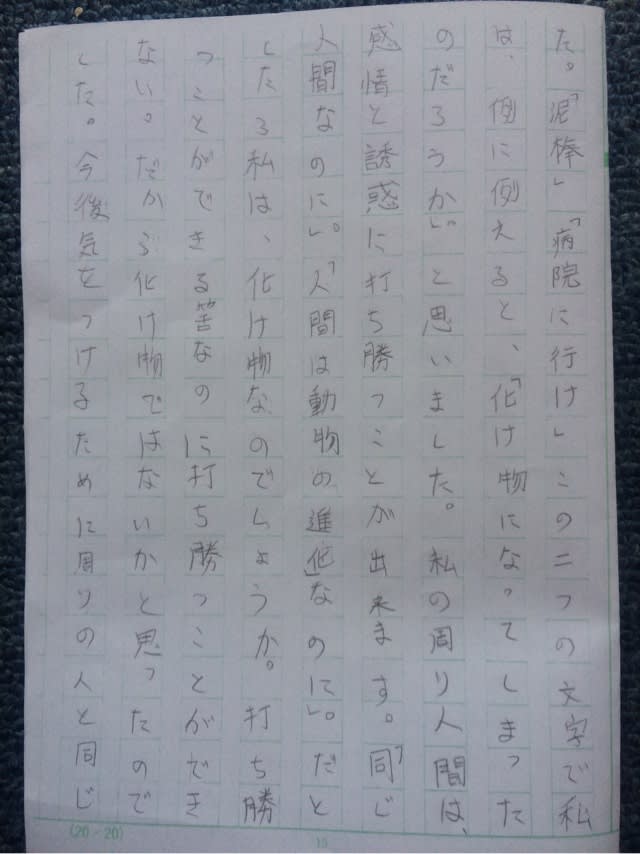 た。「泥棒」「病院に行け」この二つの文字で私
は、例に例えると、「化け物になってしまった
のだろうか」。と思いました。私の周り人間は、
感情と誘惑に打ち勝つことが出来ます。「同じ
人間なのに」。「人間は動物の進化」なのに」。だと
したら私は、化け物なのでしょうか。打ち勝
つことができる筈なのに打ち勝つことができ
ない。だから化け物ではないかと思ったので
した。今後気をつけるために周りの人と同じ
(20×20)